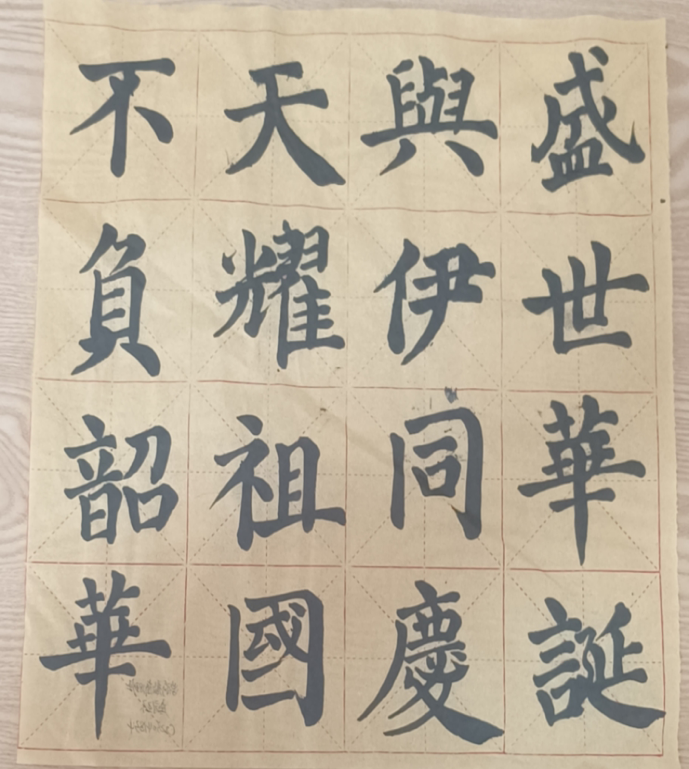 盛世華誕
與伊同慶
天耀祖國
不負韶華